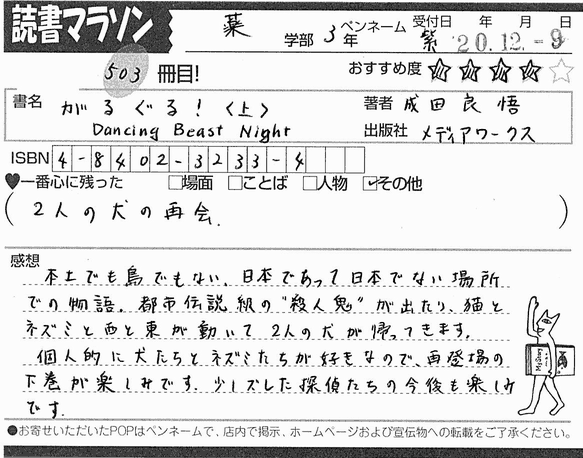 読書マラソン
薬 学部 3 年 ペンネーム 紫 受付日 年 月 日 '20.12.-9
503 冊目!
おすすめ度 ★★★★☆
書名 がるぐる!〈上〉 Dancing Beast Night
著者 成田良悟
出版社 メディアワークス
ISBN 4-8402-3233-4
♥一番心に残った □場面 □ことば □人物 ☑その他
(2人の犬の再会.)
感想
本土でも島でもない、日本であって日本でない場所
での物語。都市伝説級の"殺人鬼"が出たり、猫と
ネズミと西と東が動いて2人の犬が帰ってきます。
個人的に犬たちとネズミたちが好きなので、再登場の
下巻が楽しみです。少しズレした探偵たちの今後も楽しみ
です.
Mystery
●お寄せいただいたPOPはペンネームで、店内で掲示、ホームページおよび宣伝物への転載をご了承ください。